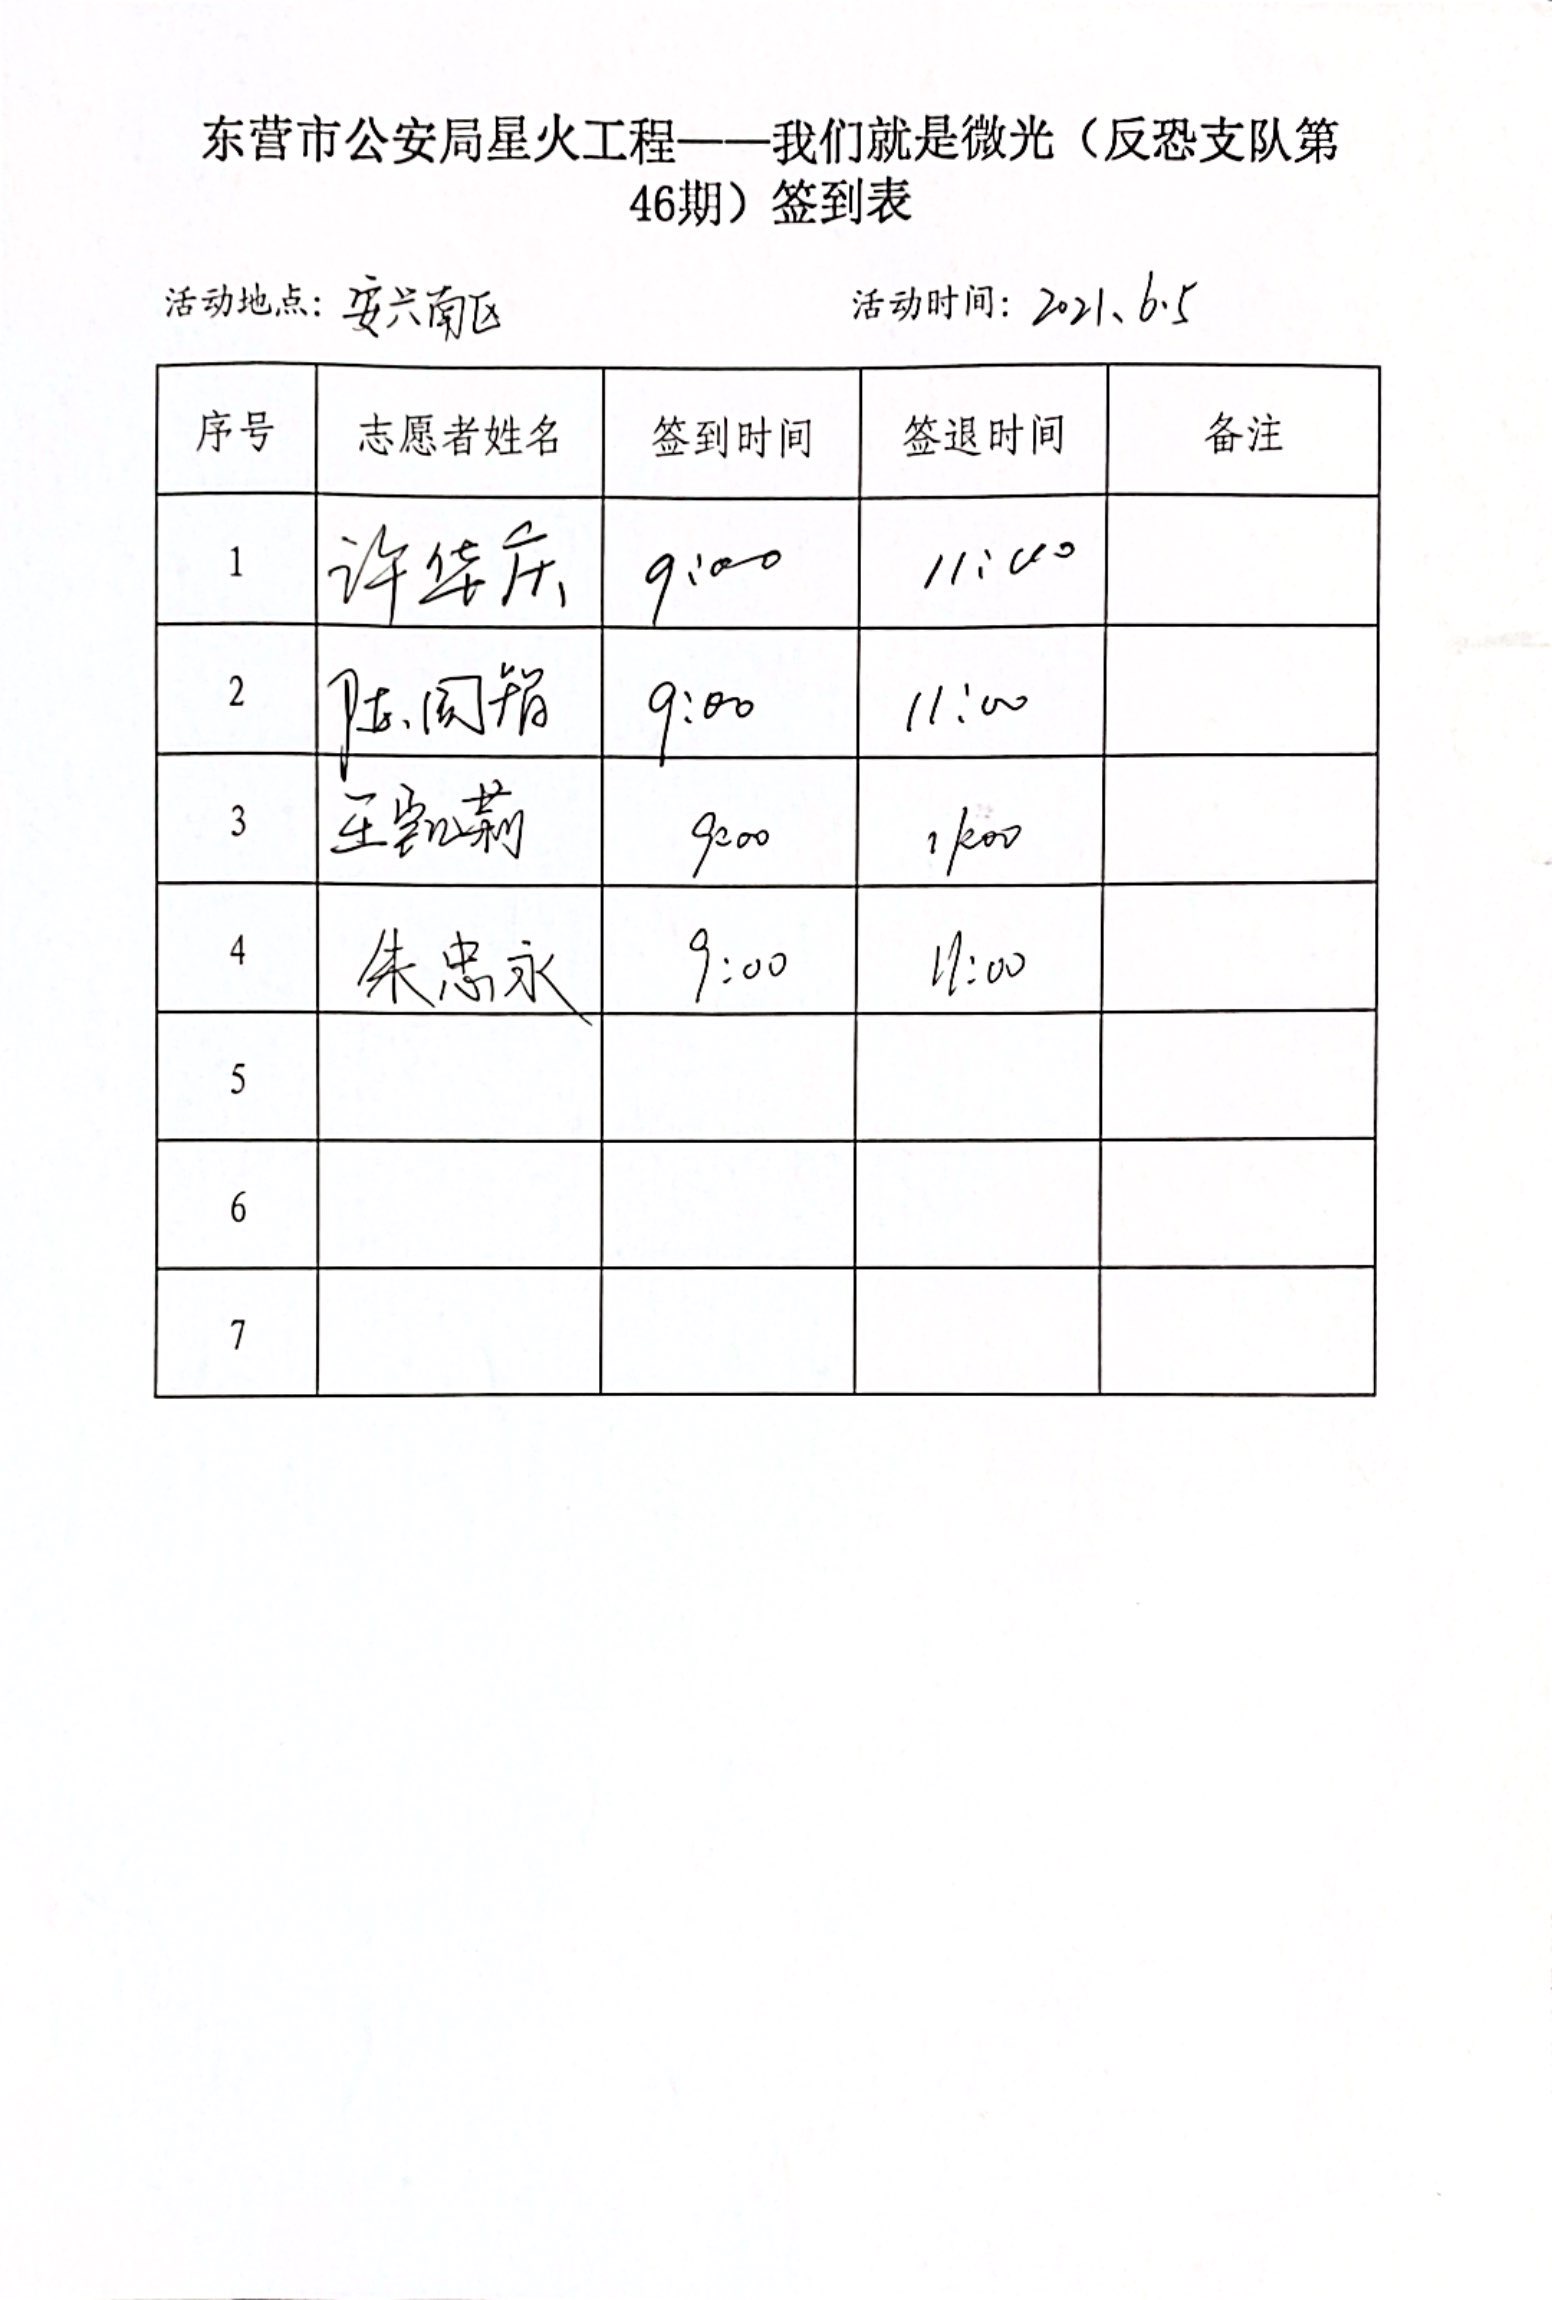 东营市公安局星火工程——我们就是微光（反恐支队第
46期）签到表
活动地点：安兴南区 活动时间：2021、6.5
序号 志愿者姓名 签到时间 签退时间 备注
1 许华庆 9:00 11:00
2 9:00 11:00
3 王凯莉 9:00 11:00
4 朱忠永 9:00 11:00
5
6
7